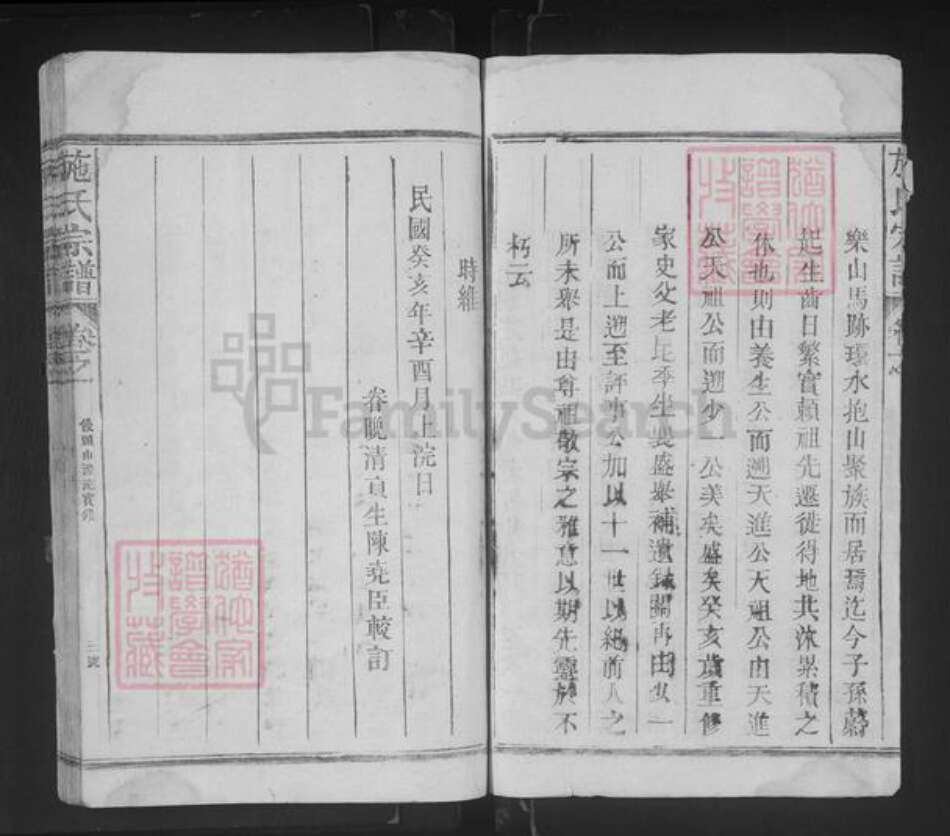 樂山馬跡環水抱山聚族而居焉迄今子孫蔚
起生齒日繁實賴祖先遷徙得地其沐累積之
休也則由養生公而遡天進公天祖公由天進
公天祖公而遡少一公美矣盛矣癸亥歲重修
家史父老昆季坐襄盛舉補遺缺關再由少一
公而上遡至評事公加以十一世以絕前人之
所未舉是由尊祖敬宗之雅意以期先靈於不
朽云
時維
民國癸亥年辛酉月上浣日
眷晚清貢生陳堯臣較訂
施氏宗譜
卷之一
饅頭山源流實錄
三號
FamilySearch